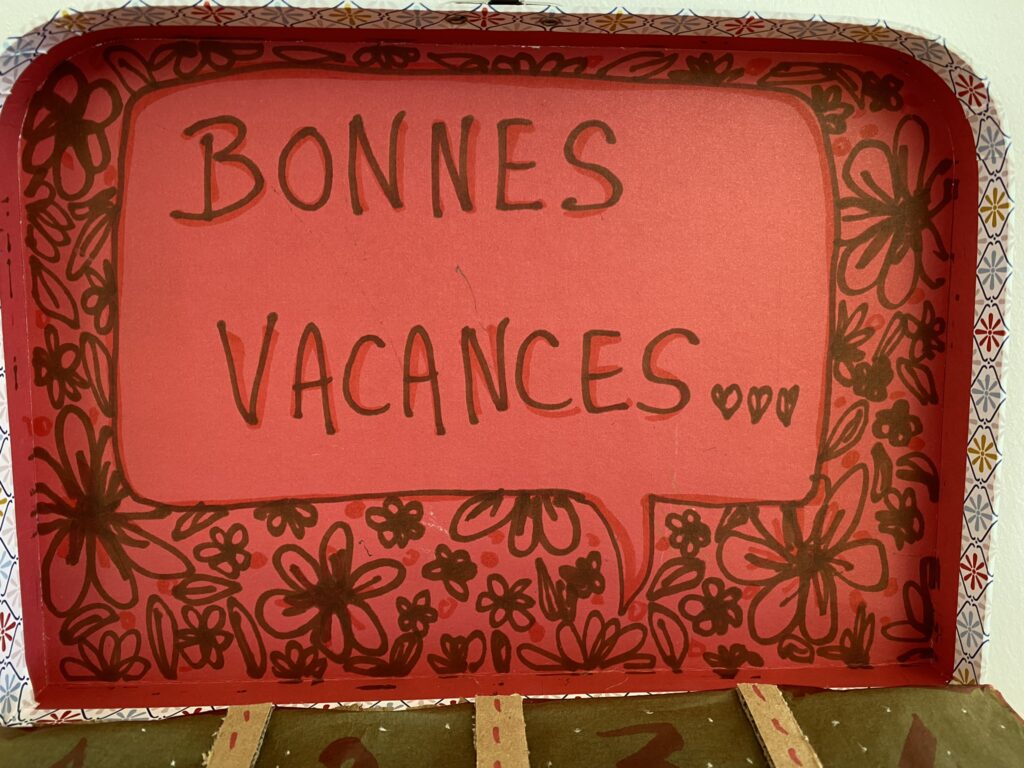 BONNES
VACANCES...
3